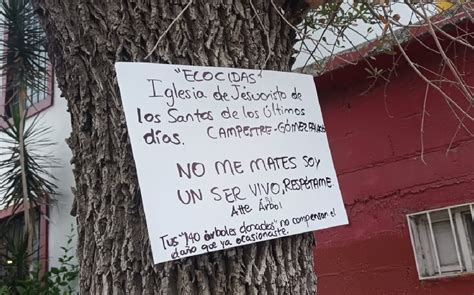 "ECOCIDAS"
Iglesia de Jesucristo de
los Santos de los Últimos
días. CAMPESTRE-GÓMEZ PALACIO
NO ME MATES SOY
UN SER VIVO, RESPÉTAME.
Atte Árbol
Tus "140 árboles donados" no compensan el
daño que ya ocasionaste.